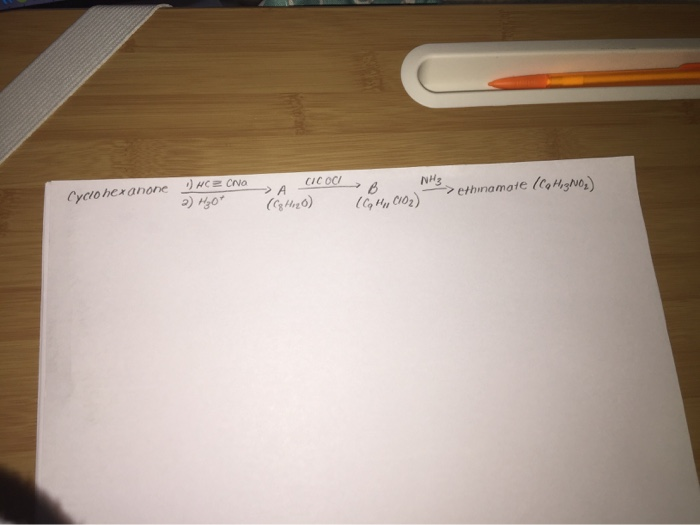 Cyclohexanone 1) HC≡CNa 2) H₃O⁺ → A (C₈H₁₂O) ClCOCl → B (C₉H₁₁ClO₂) NH₃ → ethinamate (C₉H₁₃NO₂)